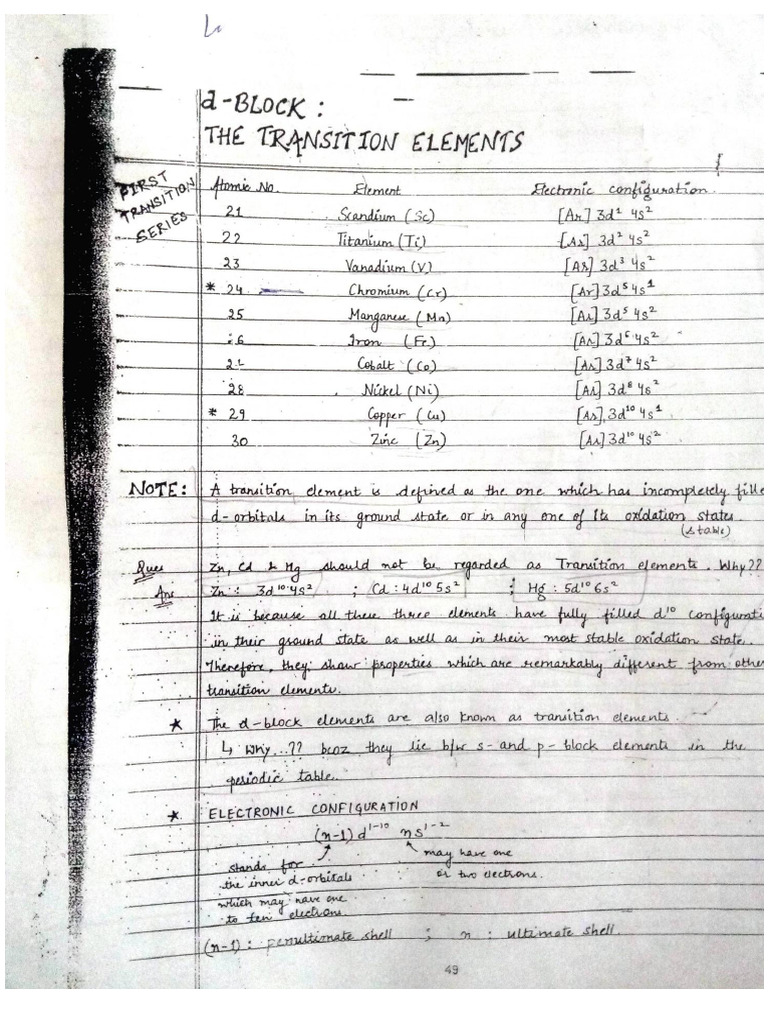 d-BLOCK :
THE TRANSITION ELEMENTS
FIRST TRANSITION SERIES
Atomic No. Element Electronic configuration.
21 Scandium (Sc) [Ar] 3d¹ 4s²
22 Titanium (Ti) [Ar] 3d² 4s²
23 Vanadium (V) [Ar] 3d³ 4s²
* 24 Chromium (Cr) [Ar] 3d⁵ 4s¹
25 Manganese (Mn) [Ar] 3d⁵ 4s²
26 Iron (Fe) [Ar] 3d⁶ 4s²
27 Cobalt (Co) [Ar] 3d⁷ 4s²
28 Nickel (Ni) [Ar] 3d⁸ 4s²
* 29 Copper (Cu) [Ar] 3d¹⁰ 4s¹
30 Zinc (Zn) [Ar] 3d¹⁰ 4s²
NOTE: A transition element is defined as the one which has incompletely fille
d-orbitals in its ground state or in any one of its oxidation states.
(stable)
Ques Zn, Cd & Hg should not be regarded as Transition elements. Why??
Ans Zn : 3d¹⁰ 4s² ; Cd : 4d¹⁰ 5s² ; Hg : 5d¹⁰ 6s²
It is because all these three elements have fully filled d¹⁰ configurati
in their ground state as well as in their most stable oxidation state.
Therefore, they show properties which are remarkably different from other
transition elements.
* The d-block elements are also known as transition elements.
↳ Why...?? bcoz they lie b/w s- and p-block elements in the
periodic table.
* ELECTRONIC CONFIGURATION
(n-1) d¹⁻¹⁰ ns¹⁻²
stands for
the inner d-orbitals
which may have one
to ten electrons.
may have one
or two electrons.
(n-1) : penultimate shell ; n : ultimate shell.
49